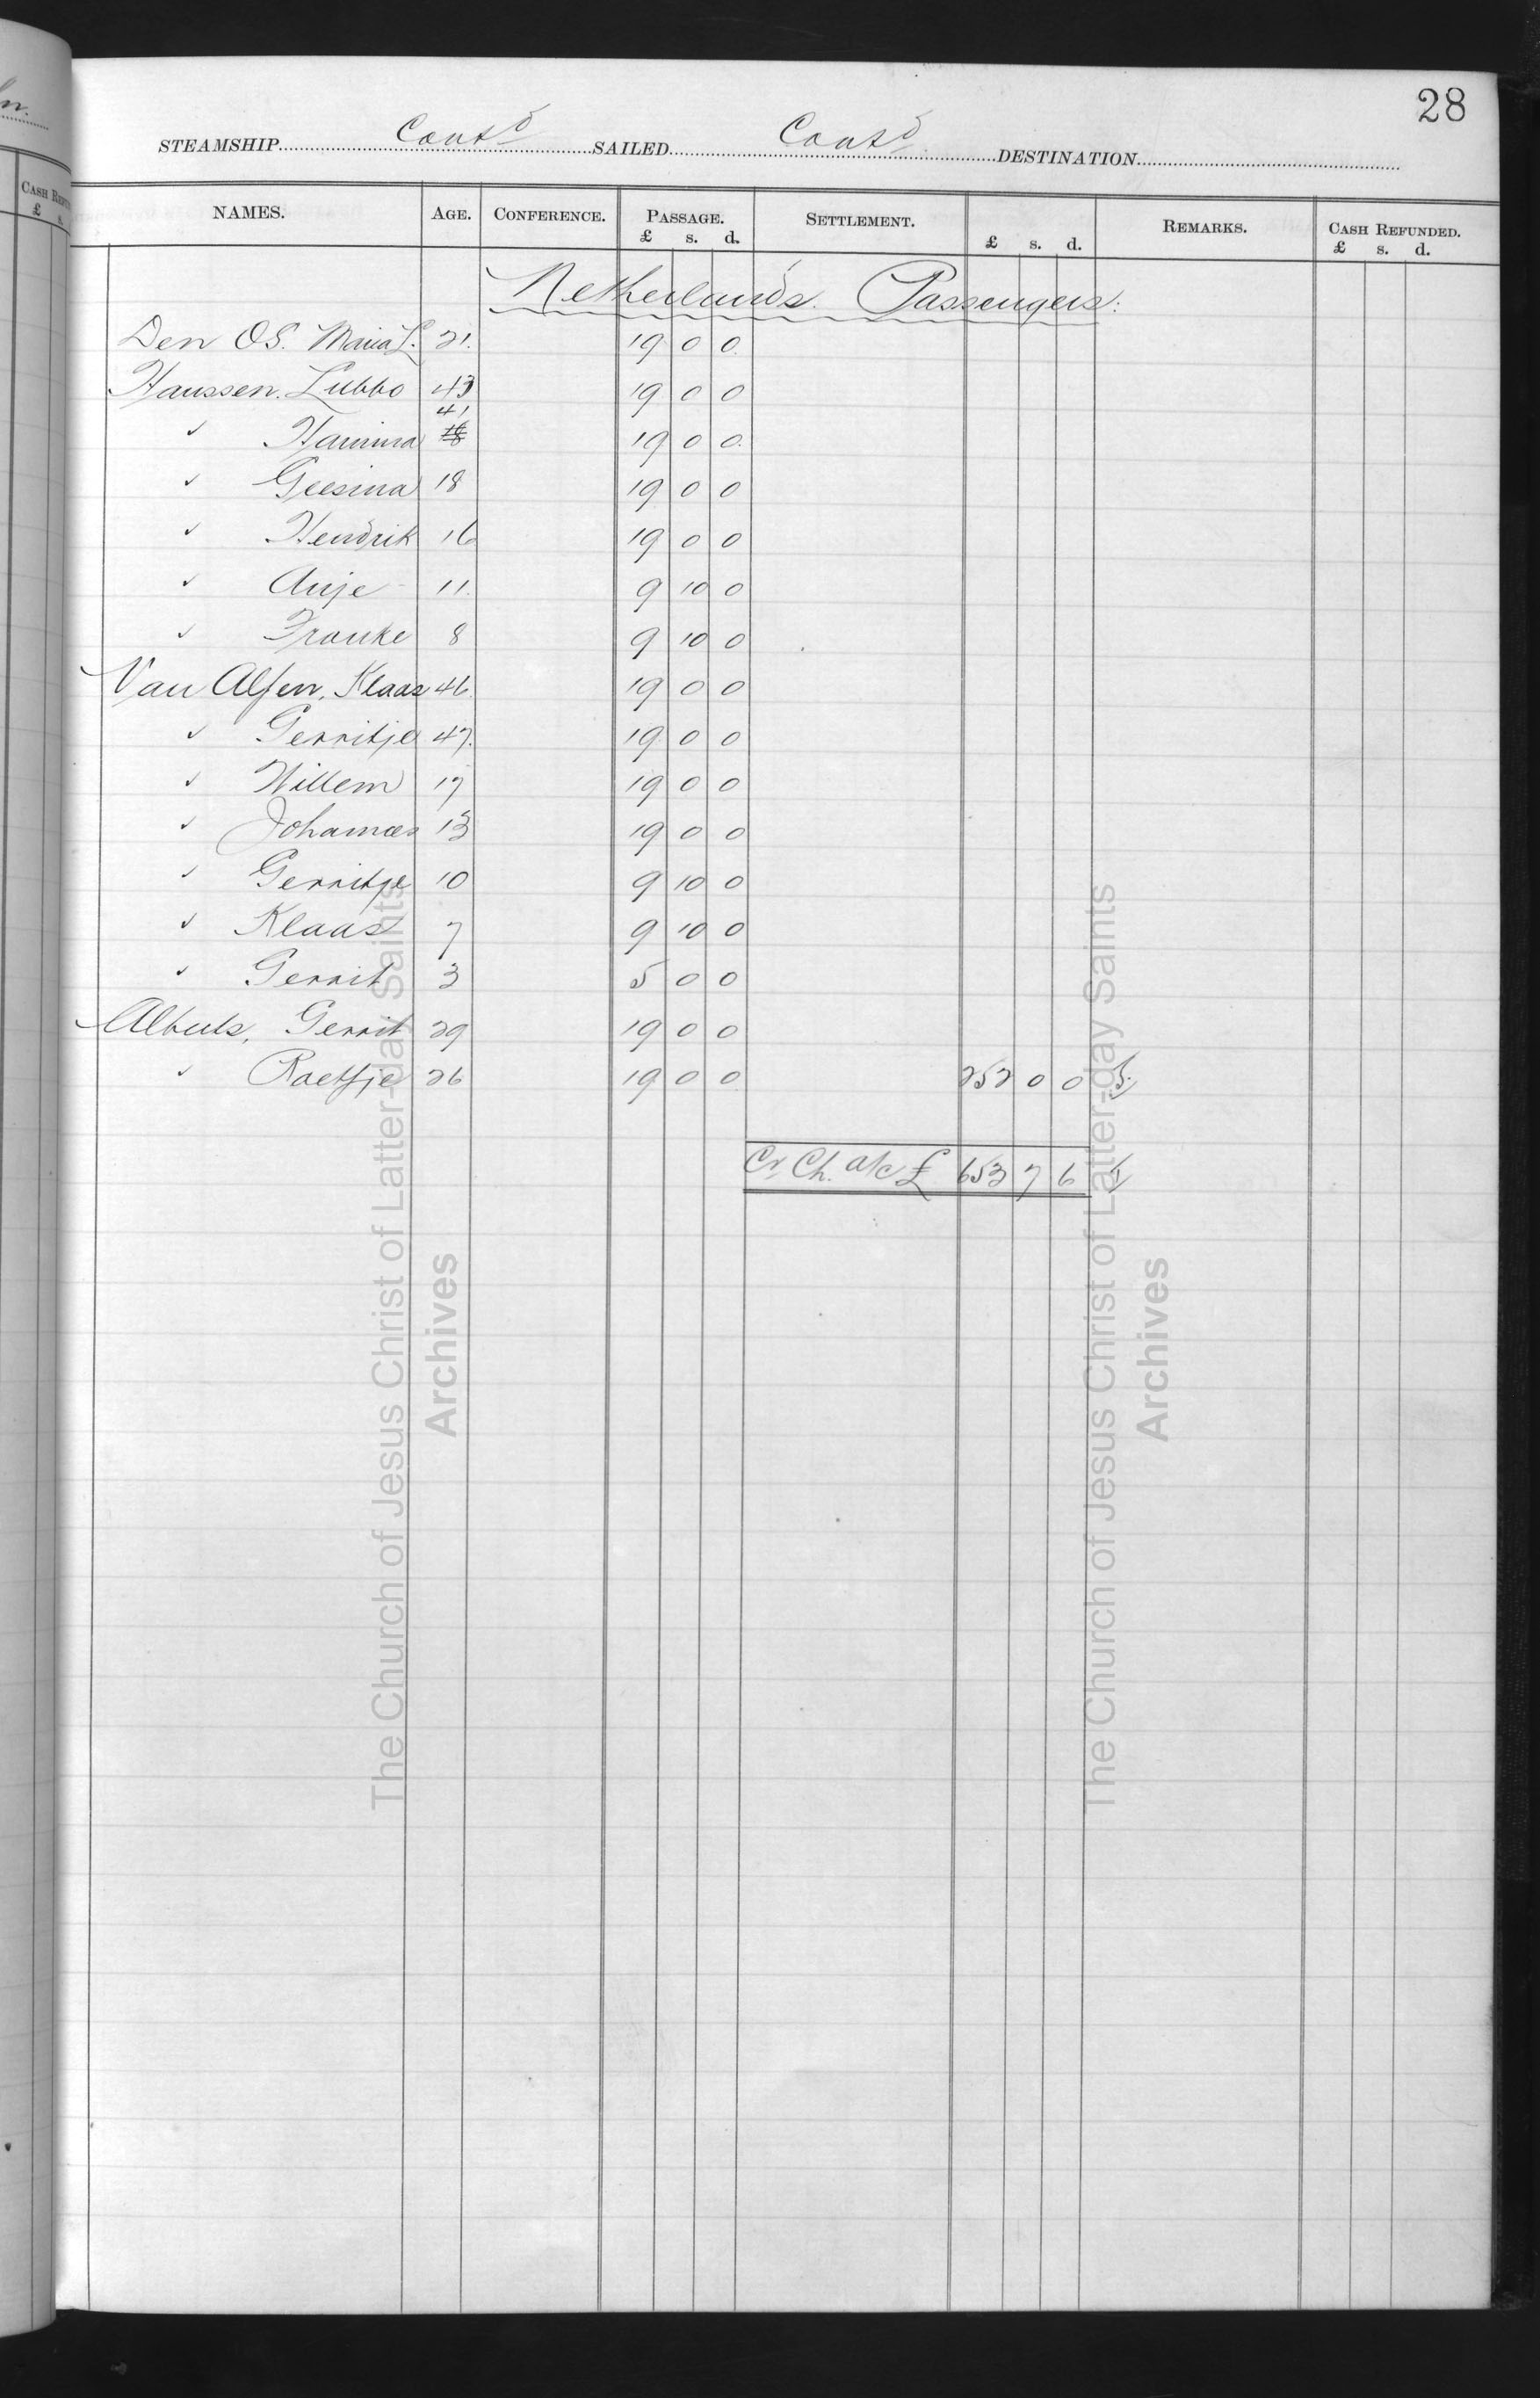 28
STEAMSHIP Contd SAILED Contd DESTINATION
NAMES. AGE. CONFERENCE. PASSAGE. £ s. d. SETTLEMENT. £ s. d. REMARKS. CASH REFUNDED. £ s. d.
Netherlands Passengers:
Den OS. Maria L. 21. 19 0 0
Haussen. Lubbo 43 19 0 0
" Hamina 41 18 19 0 0
" Geesina 18 19 0 0
" Hendrik 16 19 0 0
" Anje 11. 9 10 0
" Frouke 8 9 10 0
Van Alfen, Klaas 46 19 0 0
" Gerritje 47. 19 0 0
" Willem 17 19 0 0
" Johannes 13 19 0 0
" Gerritje 10 9 10 0
" Klaas 7 9 10 0
" Gerrit 3 5 0 0
Alberts, Gerrit 29 19 0 0
" Roelfje 26 19 0 0 252 0 0
Cr Ch. a/c £ 653 7 6
The Church of Jesus Christ of Latter-day Saints
Archives
The Church of Jesus Christ of Latter-day Saints
Archives
CASH
£ s.